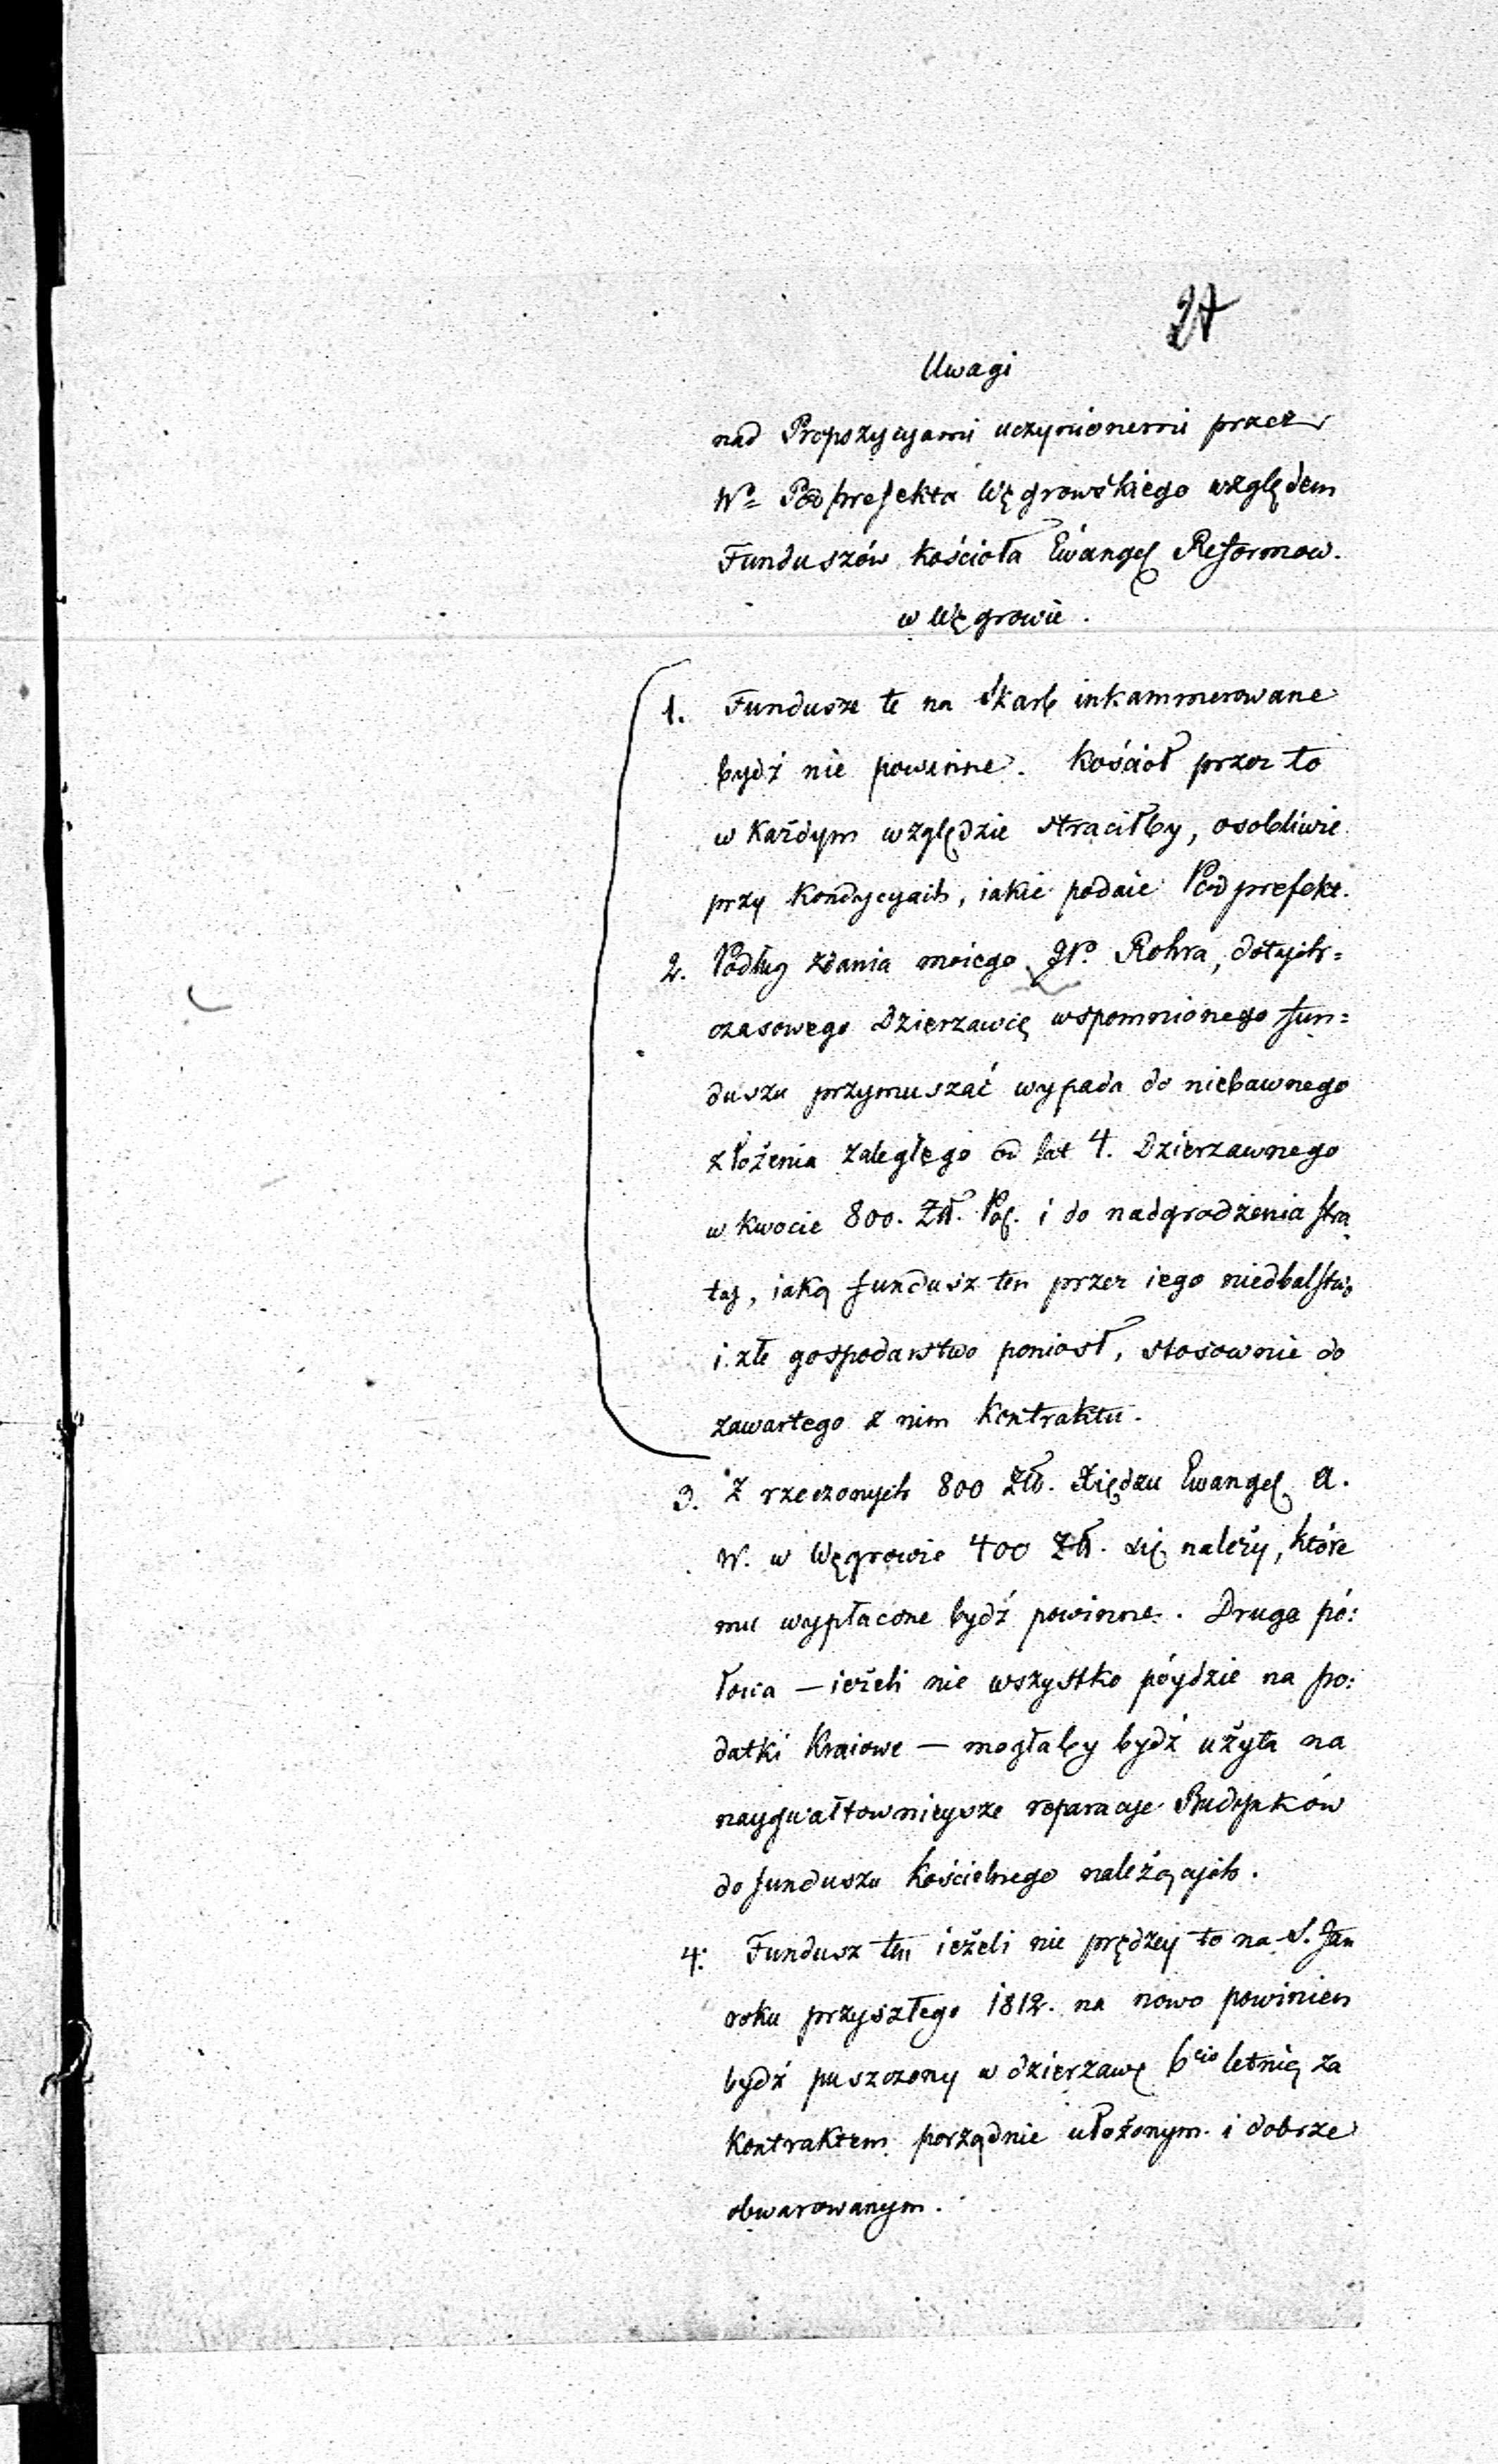 27
Uwagi
nad Propozycyami uczynionemi przez
Wo Podprefekta Węgrowskiego względem
Funduszów Kościoła Ewangel Reformow.
w Węgrowie.
1. Fundusze te na Skarb inkammerowane
bydź nie powinne. Kościół przez to
w każdym względzie straciłby, osobliwie
przy kondycyach, iakie podaie Podprefekt.
2. Podług zdania moiego Rohra, dotych=
czasowego Dzierzawcę wspomnionego fun=
duszu przymuszać wypada do niebawnego
złożenia zaległego od lat 4. Dzierzawnego
w kwocie 800. Zł. Pol. i do nadgrodzenia stra
ty, iaką fundusz ten przez iego niedbalstwo
i złe gospodarstwo poniosł, stosownie do
zawartego z nim Kontraktu.
3. Z rzeczonych 800 Zł. Xiędzu Ewangel. A.
W. w Węgrowie 400 Zł. się należy, które
mu wypłacone bydź powinne. Druga po:
łowa — ieżeli nie wszystko póydzie na po:
datki Kraiowe — mogłaby bydź użyta na
naygwałtownieysze reparacye Budynków
do funduszu Kościelnego należących.
4. Fundusz ten ieżeli nie prędzey to na S. Jan
roku przyszłego 1812. na nowo powinien
bydź puszczony w dzierzawę 6cio letnią za
Kontraktem porządnie ułożonym i dobrze
obwarowanym.